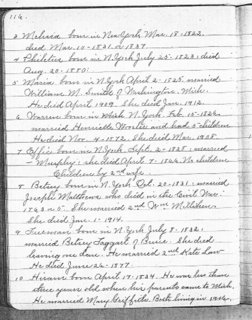 116.
3 Melissa born in New York Mar. 18-1822.
died Mar. 10-1821 or 1827
4 Philetus born in N.York July 25-1823; died
Aug. 20-1880.
5 Maria born in N.York April 2-1825. married
William M. of Washington, Mich.
He died April 1909. She died Jan. 1912.
6 Warren born in Wash. N.York. Feb. 15-1826.
married Henrietta had 5 children
He died Nov. 4-1872. She died Mar. 1908.
7 born in N.York Sept. 2-1828; married
Murphy; she died April 7-1862. No children
Children by 2nd wife.
8 Betsey born in N.York Oct. 20-1831. married
Joseph Matthews who died in the Civil War.
1863 or 5. She married 2nd Wm. McMahon.
She died Jan. 1-1914.
9 Truman born in N.York July 8-1832.
married Betsey Taggart of Bruce. She died
leaving one dau. He married 2nd Kate Law
He died June 26-1877.
10 Hiram born April 17-1834. He was less than
three years old when his parents came to Mich.
He married Mary Griffith. Both living in 1916.